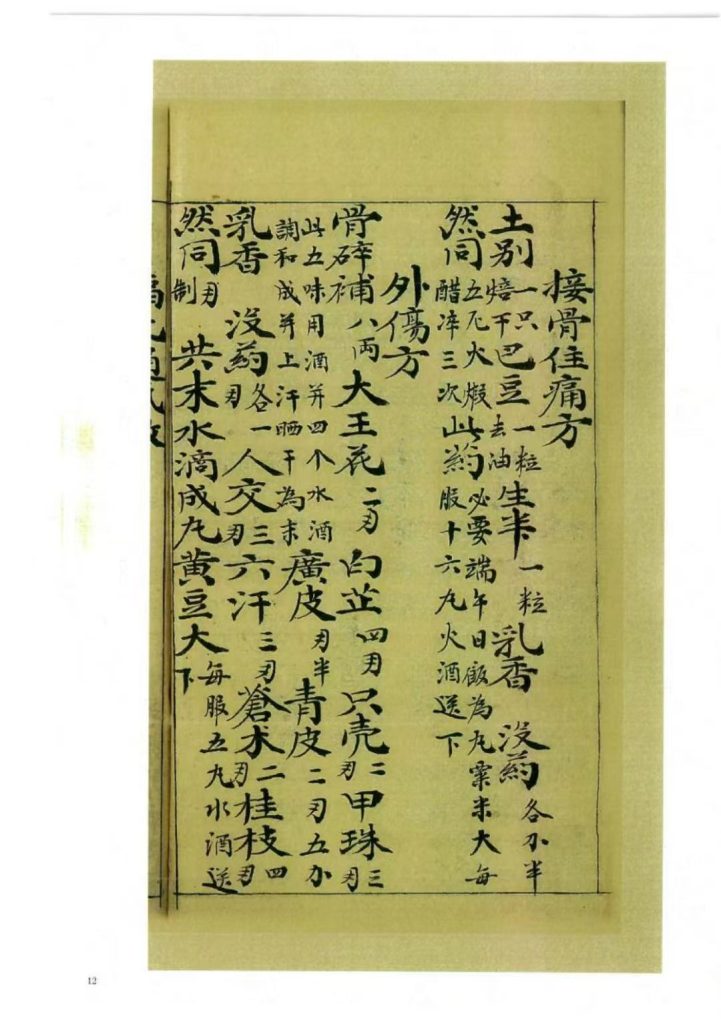 接骨住痛方
土别一只焙干巴豆一粒去油生半一粒乳香 没药各分半
然同五瓦火煅醋淬三次此药必要端午日飯為丸粟米大每服十六丸火酒送下
外傷方
骨碎補八両大王花二刄白芷四刄只壳二刄甲珠三刄
此五味用酒并四个水酒調和成并上汗晒干為末廣皮刄半青皮二刄五分
乳香 没药各一刄人交三刄六汗三刄蒼术二刄桂枝四刄
然同制刄共末水滴成丸黄豆大每服五丸水酒送下
12